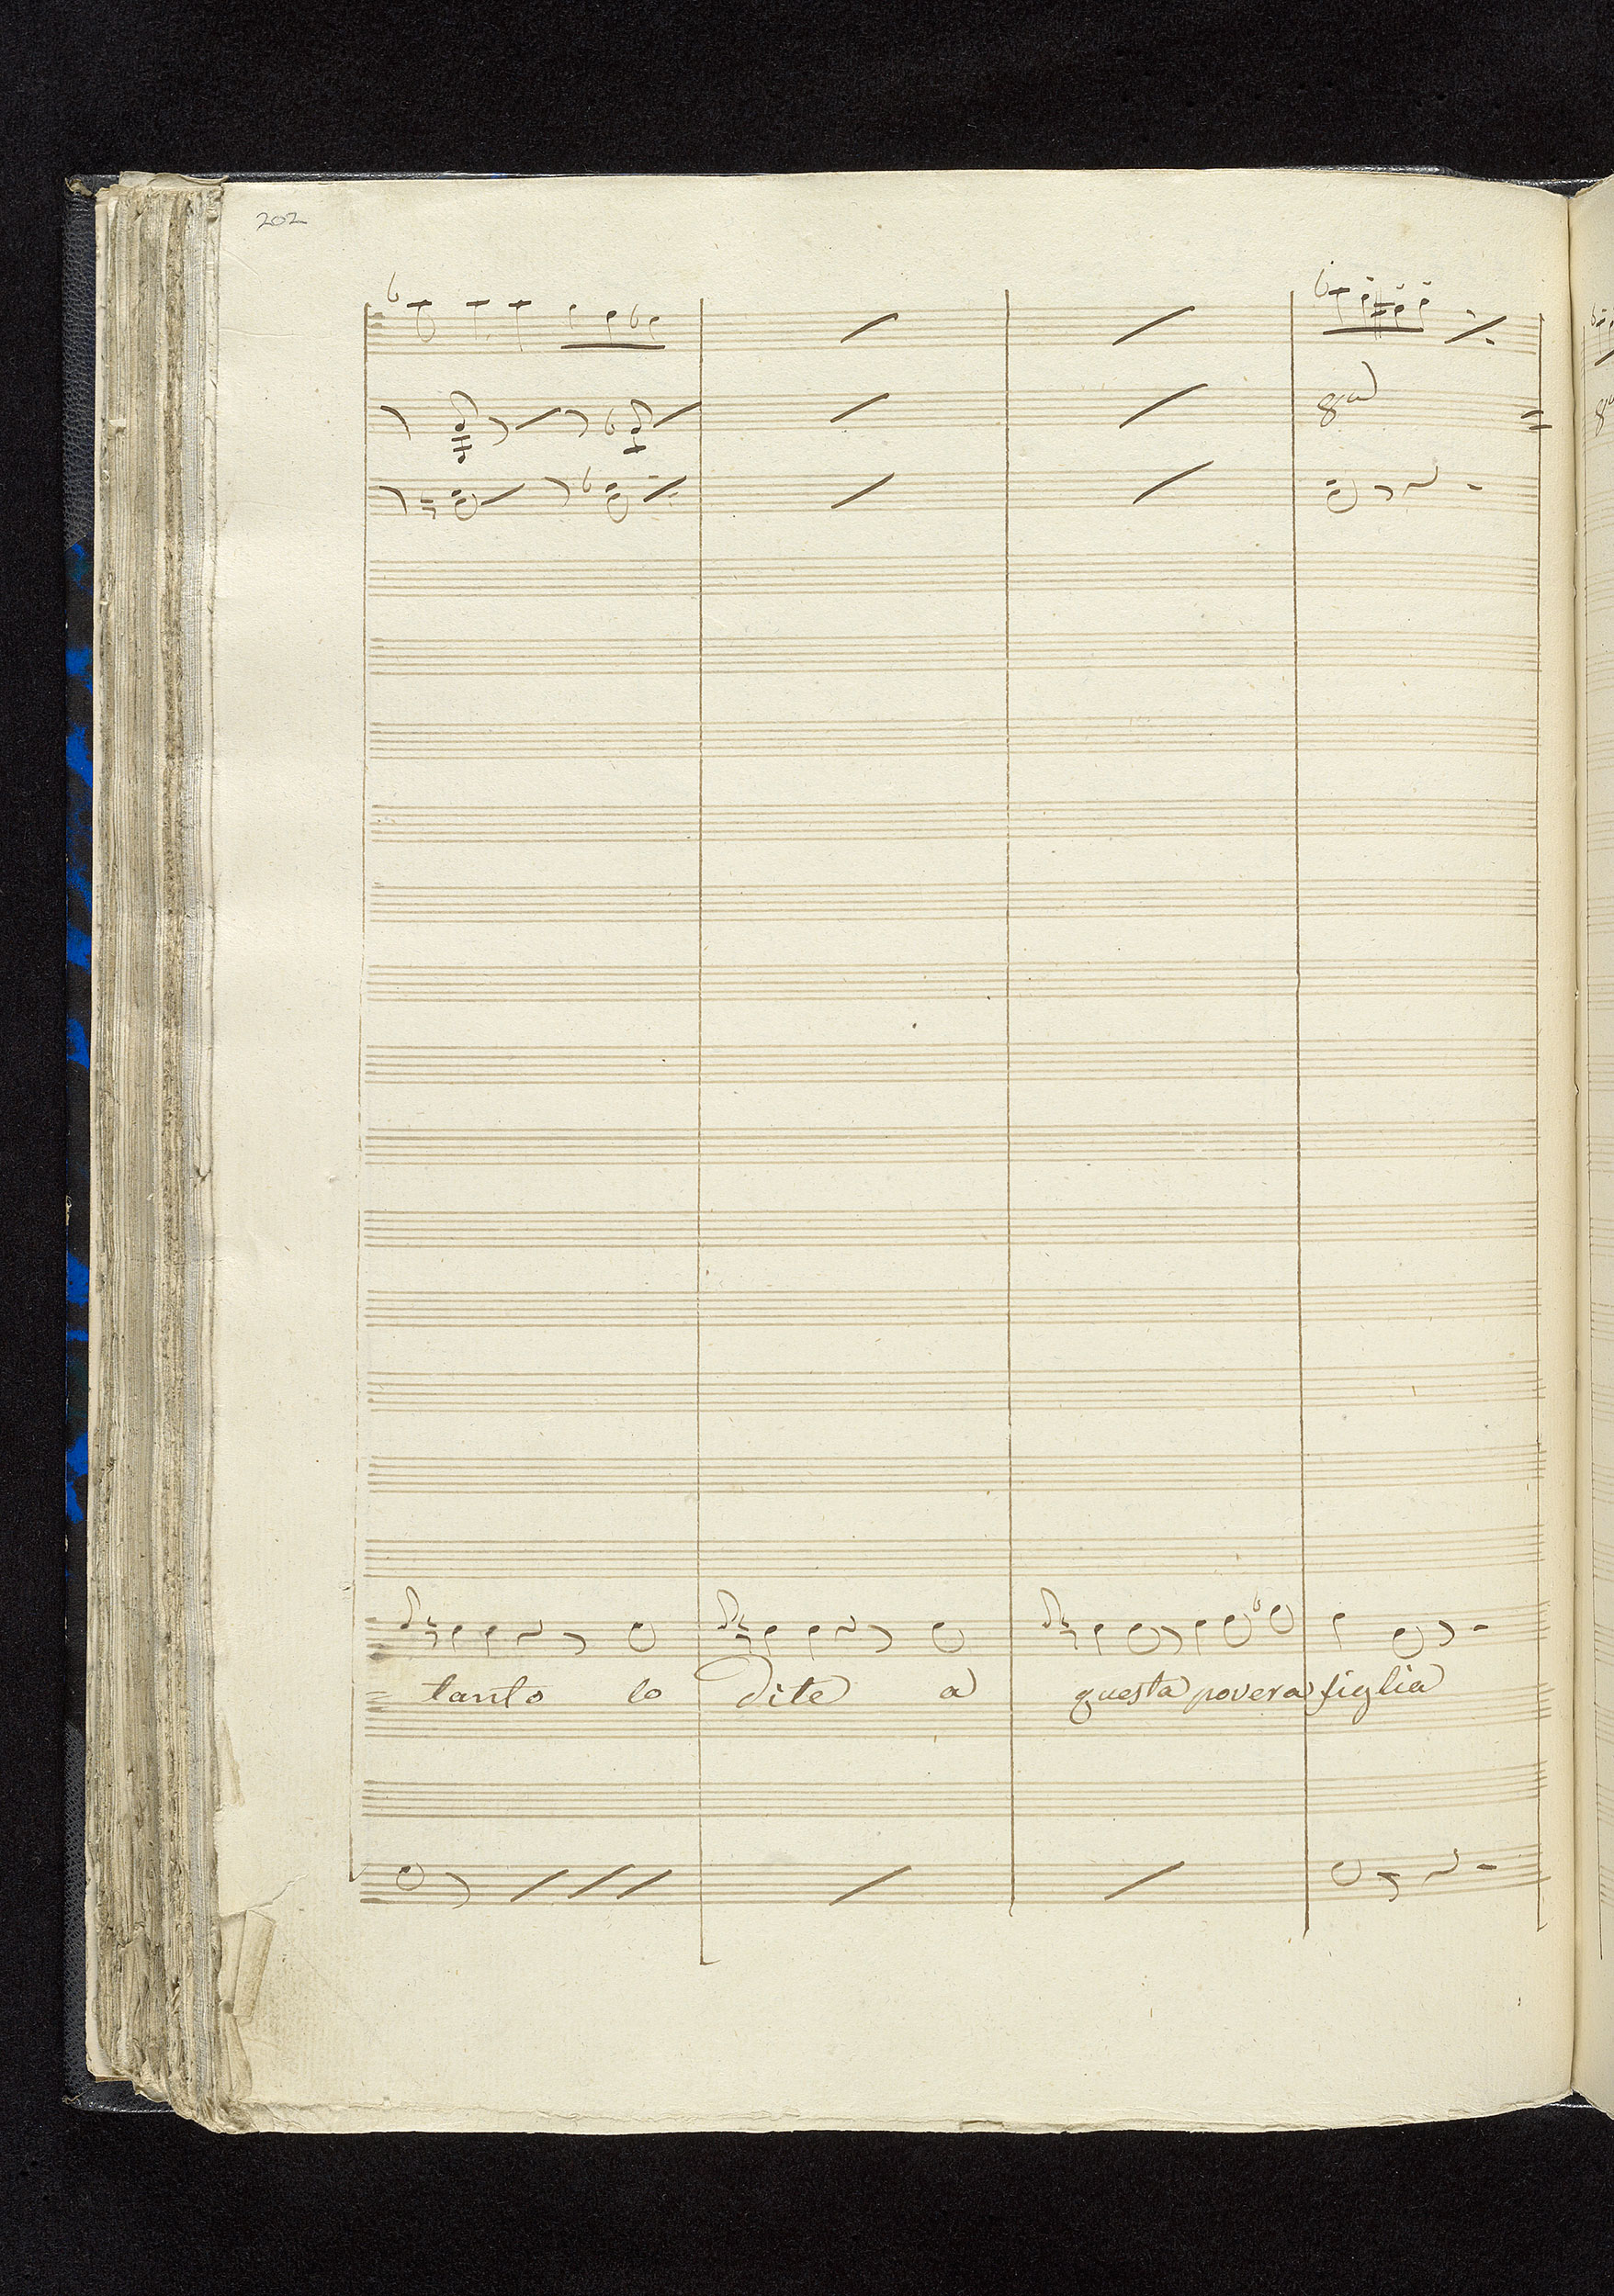 202
8va
tanto lo dite a questa povera figlia